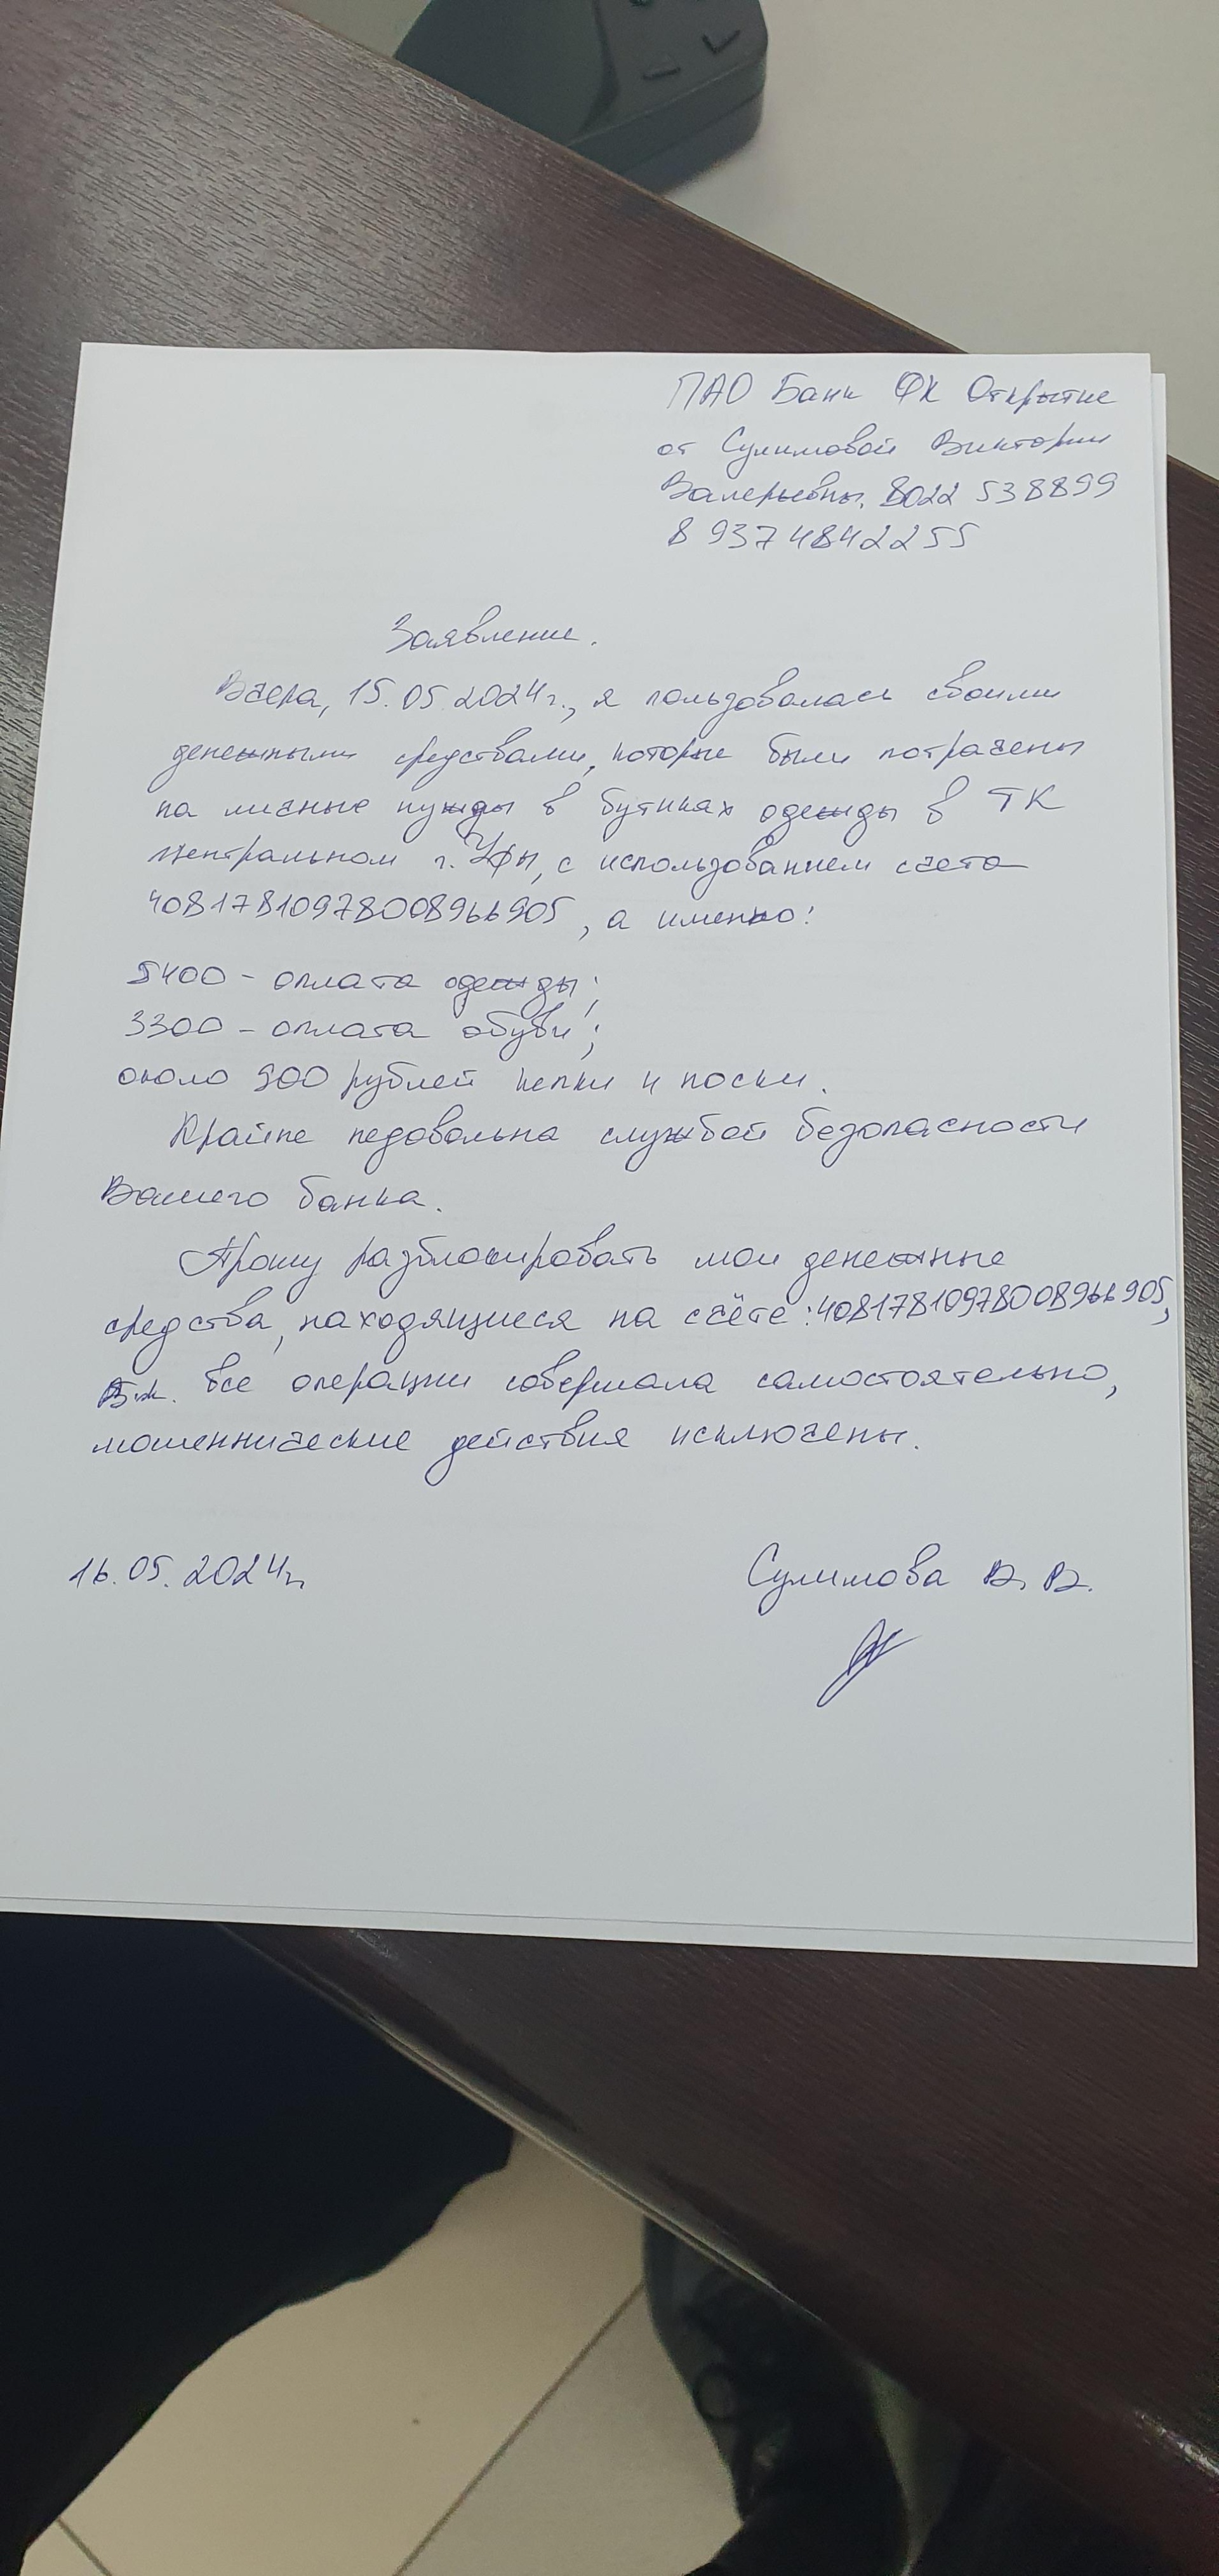 ПАО Банк ФК Открытие
от Сулимовой Виктории
Валерьевны. 8022 538899
8 937 4842255
Заявление.
Вчера, 15.05.2024г., я пользовалась своими
денежными средствами, которые были потрачены
на личные нужды в бутиках одежды в ТК
Центральном г. Уфы, с использованием счета
40817810978008966905, а именно:
5400 - оплата одежды;
3300 - оплата обуви;
около 900 рублей кепки и носки.
Крайне недовольна службой безопасности
Вашего банка.
Прошу разблокировать мои денежные
средства, находящиеся на счёте: 40817810978008966905,
все операции совершала самостоятельно,
мошеннические действия исключены.
16.05.2024г.
Сулимова В. В.